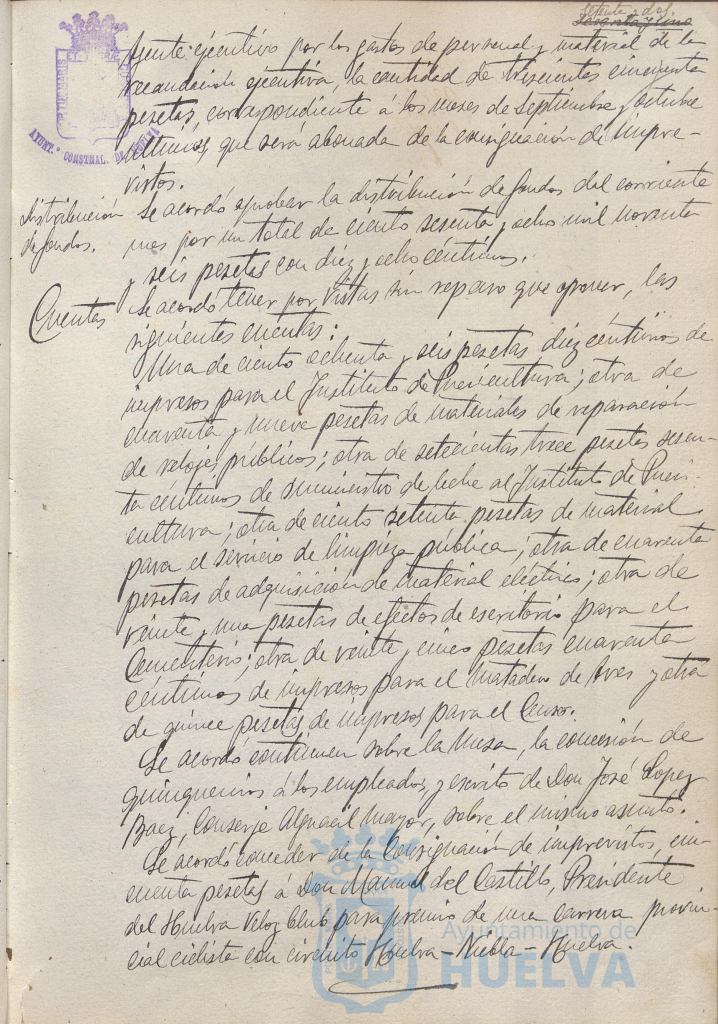 setenta y dos
Sesenta y uno
AYUNT.º CONSTNAL. DE HUELVA
Agente ejecutivo por los gastos de personal y material de la
recaudación ejecutiva, la cantidad de trescientas cincuenta
pesetas, correspondiente á los meses de septiembre y octubre
últimos, que será abonada de la consignación de impre-
vistos.
Distribución
de fondos.
Se acordó aprobar la distribución de fondos del corriente
mes por un total de ciento sesenta y ocho mil noventa
y seis pesetas con diez y ocho céntimos.
Cuentas
Se acordó tener por vistas sin reparo que oponer, las
siguientes cuentas:
Una de ciento ochenta y seis pesetas diez céntimos de
impresos para el Instituto de Puericultura; otra de
cuarenta y nueve pesetas de materiales de reparación
de relojes públicos; otra de setecientas trece pesetas sesen-
ta céntimos de suministro de leche al Instituto de Pueri-
cultura; otra de ciento setenta pesetas de material
para el servicio de limpieza pública; otra de cuarenta
pesetas de adquisición de material eléctrico; otra de
veinte y una pesetas de efectos de escritorio para el
Cementerio; otra de veinte y cinco pesetas cuarenta
céntimos de impresos para el Matadero de Aves y otra
de quince pesetas de impresos para el Censo.
Se acordó continuen sobre la Mesa, la concesión de
quinquenios á los empleados, y escrito de Don José Lopez
Baez, Conserje Alguacil mayor, sobre el mismo asunto.
Se acordó conceder de la Consignación de imprevistos, cin-
cuenta pesetas á Don Manuel del Castillo, Presidente
del Huelva Veloz Club para premio de una carrera provin-
cial ciclista con circuito Huelva-Niebla-Huelva.
Ayuntamiento de
HUELVA